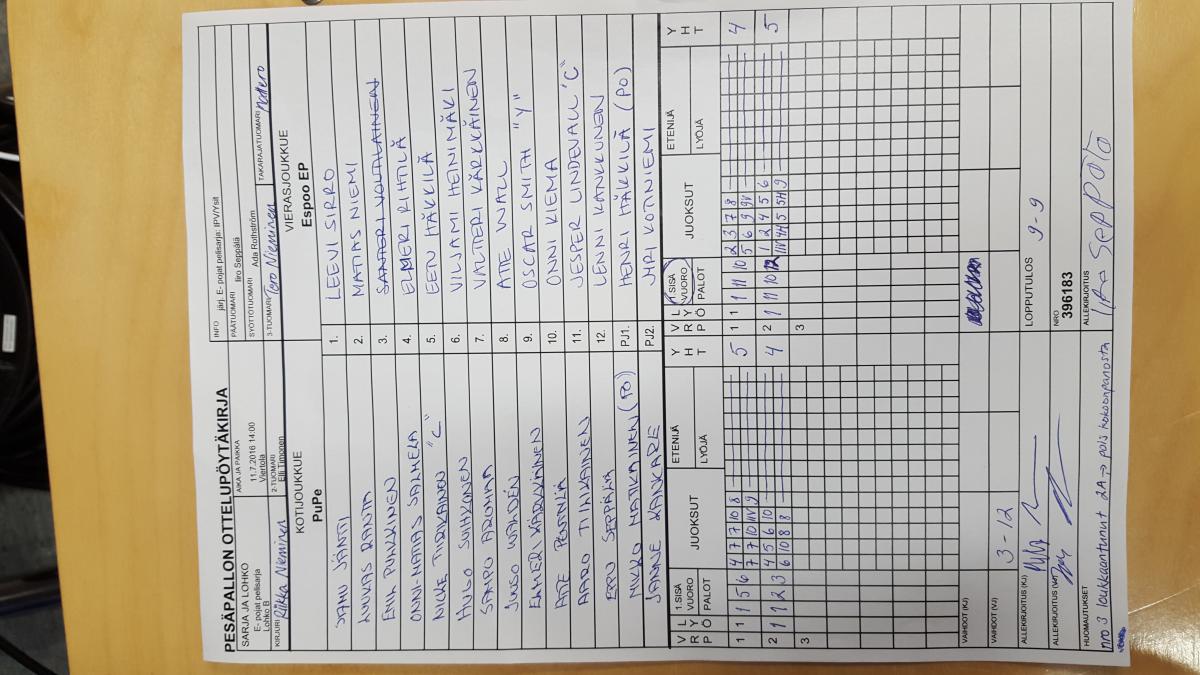 PESÄPALLON OTTELUPÖYTÄKIRJA
SARJA JA LOHKO
E- pojat pelisarja
Lohko B
AIKA JA PAIKKA
11.7.2016 14:00
Viertola
INFO järj. E- pojat pelisarja: IPV/Ysit
PÄÄTUOMARI Iiro Seppälä
SYÖTTÖTUOMARI Ada Rothström
KIRJURI Riikka Nieminen
2-TUOMARI Elli Timonen
3-TUOMARI Tero Nieminen
TAKARAJATUOMARI
KOTIJOUKKUE
PuPe
VIERASJOUKKUE
Espoo EP
1. LEEVI SIRRO
2. MATIAS NIEMI
EERIK PULKKINEN
3. SANTERI VOUTILAINEN
ONNI-MATIAS SALMELA
4. EEMERI RIHTILÄ
5. EETU HÄKKILÄ
HUGO SUHKONEN
6. VILJAMI HEINIMÄKI
SAMPO AROMAA
7. VALTTERI KÄRKKÄINEN
8. ATTE WALL
ELMER KÄRKKÄINEN
9. OSCAR SMITH "Y"
ATTE PENTTILÄ
10. ONNI KIEMA
AARO TIINKAINEN
11. JESPER LINDEVALL "C"
EPPU SEPPÄLÄ
12. LENNI KANKKUNEN
MIKKO MATIKAINEN (PO)
PJ1. HENRI HÄKKILÄ (PO)
JANNE KANKARE
PJ2. JYRI KOTINIEMI
V R P
L Y Ö
1.SISÄ VUORO
PALOT
JUOKSUT
ETENIJÄ
LYÖJÄ
Y H T
V R P
L Y Ö
1.SISÄ VUORO
PALOT
JUOKSUT
ETENIJÄ
LYÖJÄ
Y H T
1 1 1 5 6 4 7 7 10 8 5
7 7 10 11V 9
1 1 1 11 10 2 3 7 8 4
5 6 9 9V
2 1 1 2 3 4 5 6 10 4
6 10 8 8
2 1 1 11 10 12 1 2 4 5 6 5
11V 4H 5 5H 9
3
3
VAIHDOT (KJ)
VAIHDOT (VJ)
3-12
LOPPUTULOS 9-9
ALLEKIRJOITUS (KJ)
ALLEKIRJOITUS (VJ)
NRO
396183
HUOMAUTUKSET
nro 3 loukkaantunut 2A → pois kokoonpanosta
ALLEKIRJOITUS